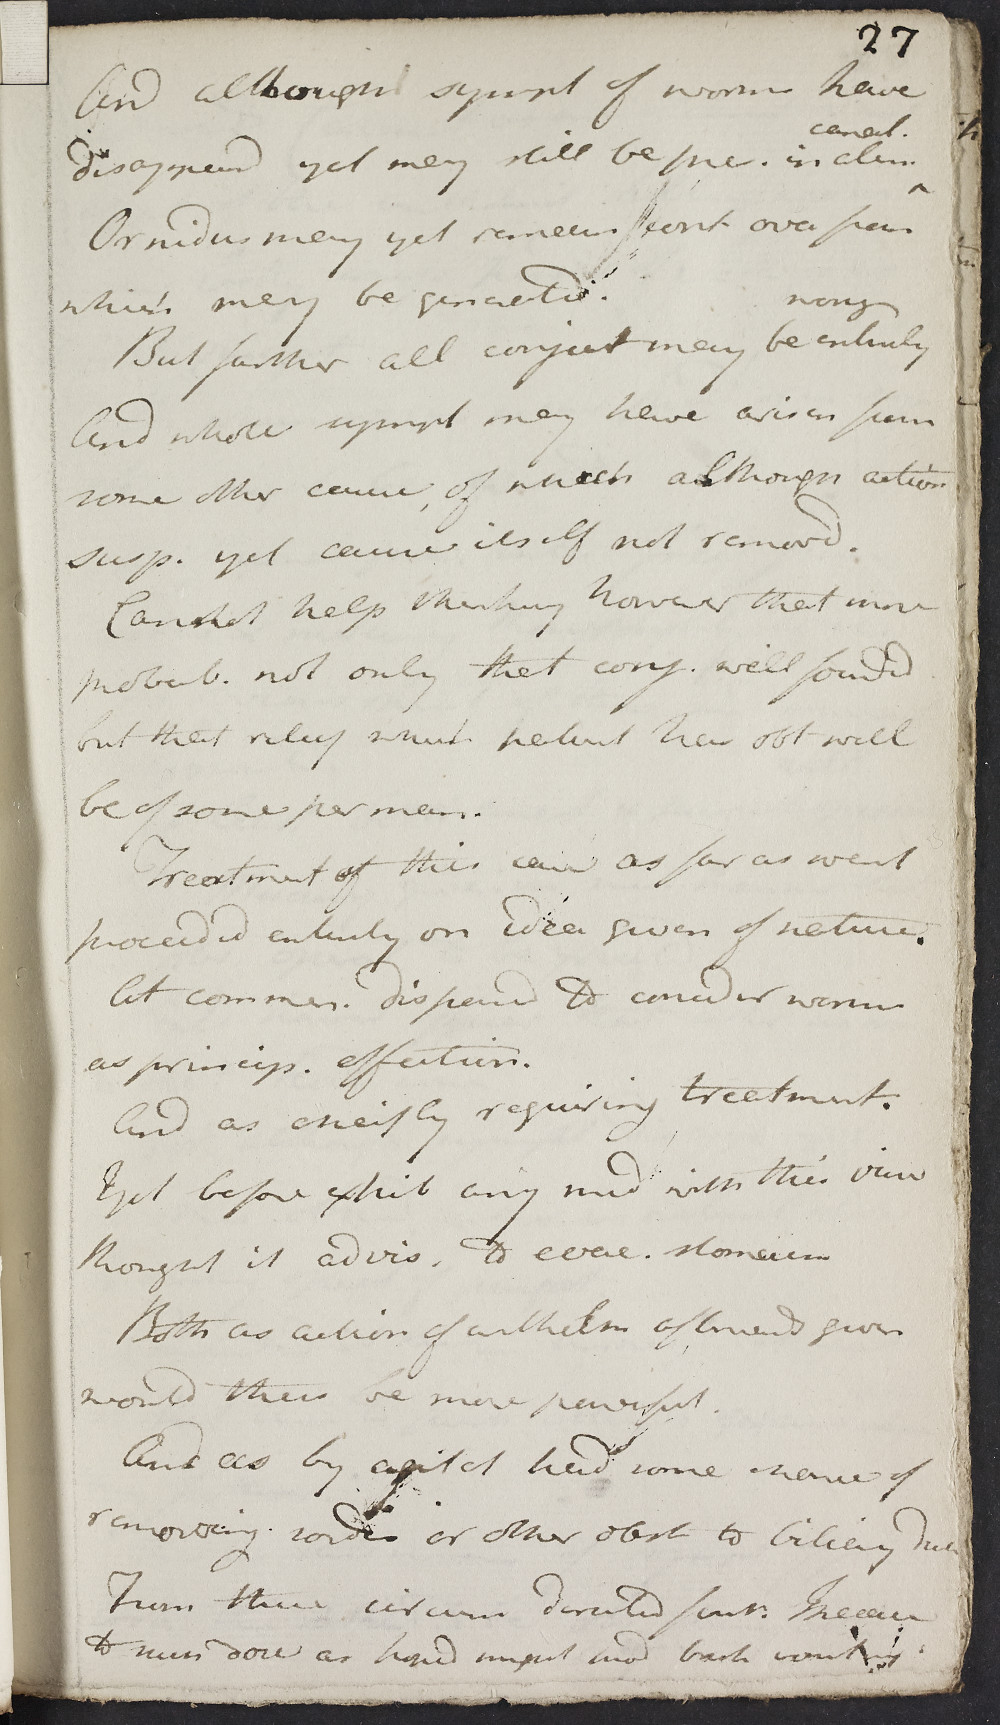 27
And although sympt of worms have
canal.
disappeard yet may still be pre. in alim ^
Or nidus may yet remain cont ova from
which may be generated.
wrong
But farther all conject may be entirely
And whole sympt may have arisen from
some other cause, of which although action
susp. yet cause itself not removd.
Cannot help thinking however that more
probab. not only that conj. well foundd
but that relief which patient has obt will
be of some perman.
Treatment of this case as far as went
proceeded entirely on idea given of nature.
At commen. disposed to consider worms
as princip. affection.
And as cheifly requiring treatment.
Yet before exhib any med with this view
thought it advis. to evac. stomach
Both as action of anthelm afterward given
would thus be more powerful.
And as by agitat had some chance of
removing sordes or other obst to biliary duct
From these circum directed
to such dose as hoped might mod brisk vomiting